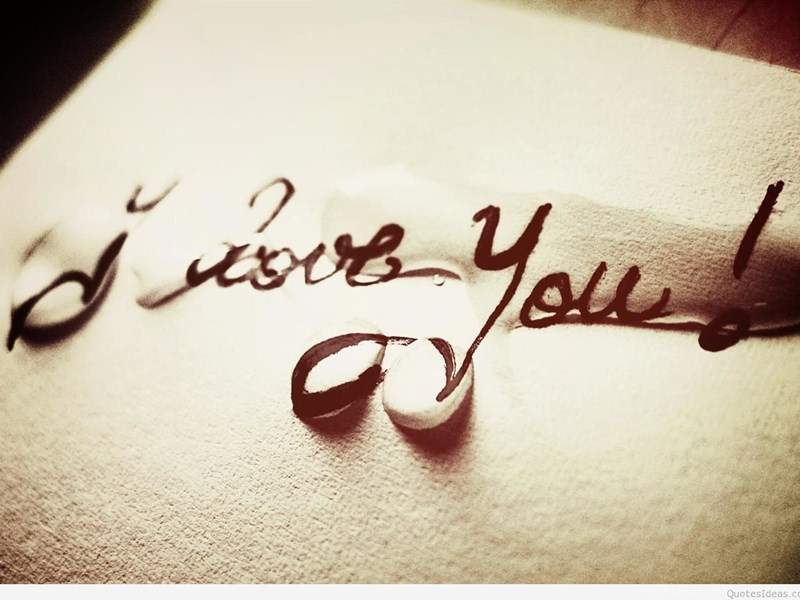 I Love You!
QuotesIdeas.co